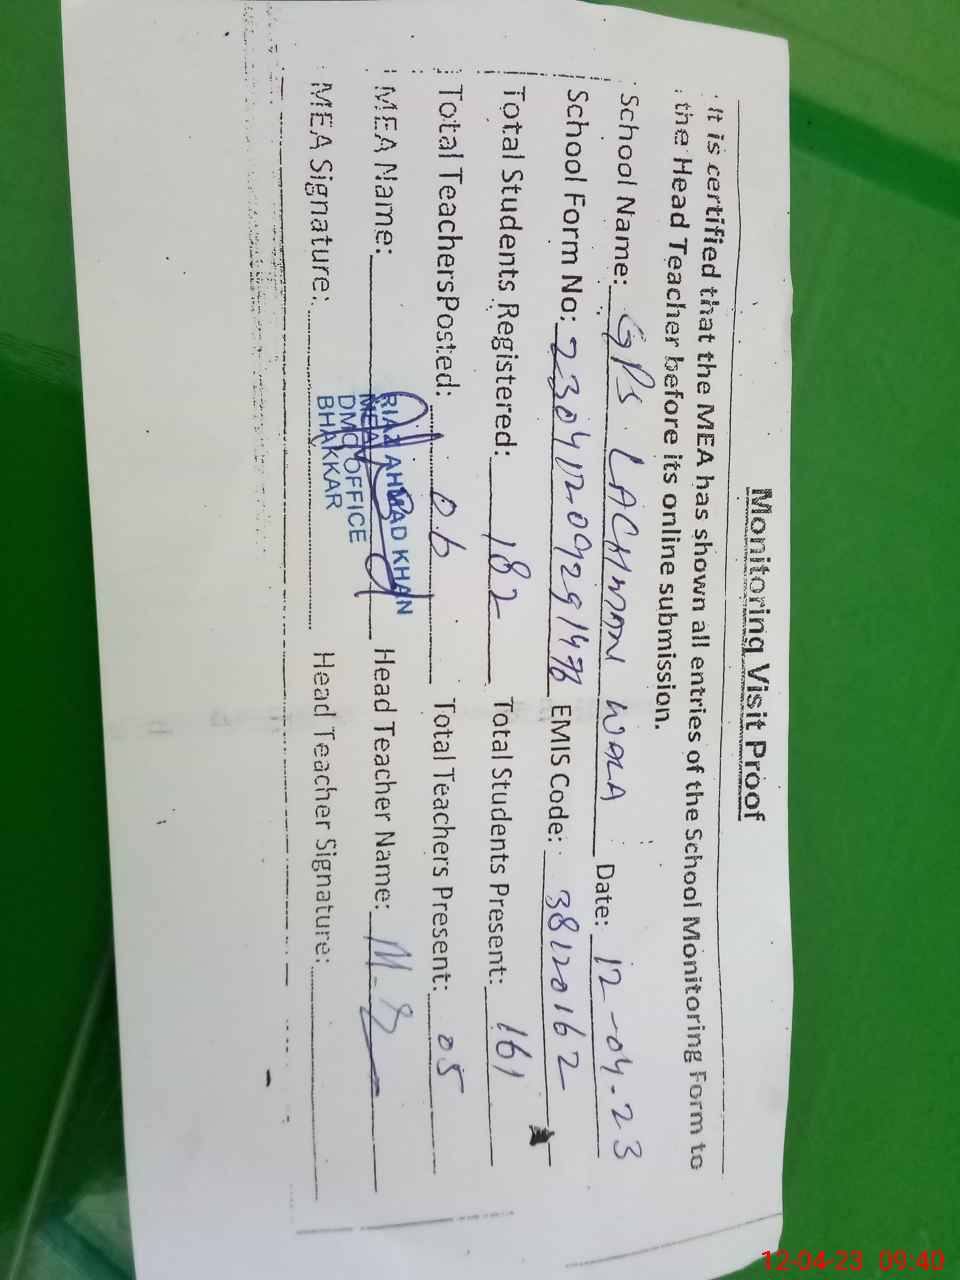 Monitoring Visit Proof
It is certified that the MEA has shown all entries of the School Monitoring Form to
the Head Teacher before its online submission.
School Name: GPS LACHMAN WALA Date: 12-04-23
School Form No: EMIS Code: 38120162
Total Students Registered: 182 Total Students Present: 161
Total TeachersPosted: 06 Total Teachers Present: 05
MEA Name: Head Teacher Name:
MEA Signature: Head Teacher Signature:
RIAZ AHMAD KHAN
MEA
DMO OFFICE
BHAKKAR
12-04-23 09:40